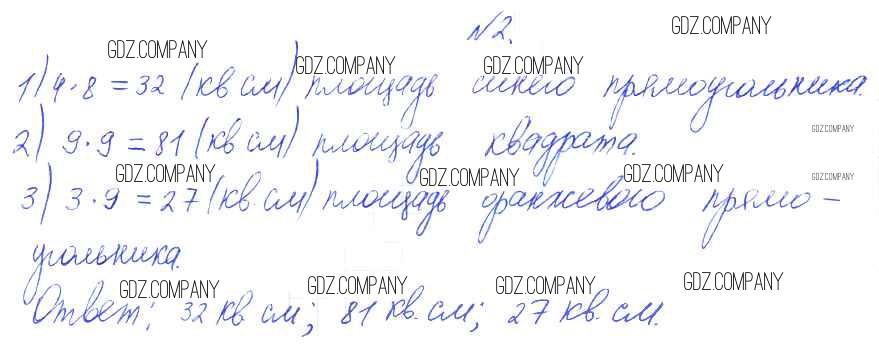 №2.
1) 4·8=32 (кв см) площадь синего прямоугольника.
2) 9·9=81 (кв см) площадь квадрата.
3) 3·9=27 (кв. см) площадь оранжевого прямо-
угольника.
Ответ: 32 кв. см; 81 кв. см; 27 кв. см.
GDZ.COMPANY
GDZ.COMPANY
GDZ.COMPANY
GDZ.COMPANY
GDZ.COMPANY
GDZ.COMPANY
GDZ.COMPANY
GDZ.COMPANY
GDZ.COMPANY
GDZ.COMPANY
GDZ.COMPANY
GDZ.COMPANY
GDZ.COMPANY